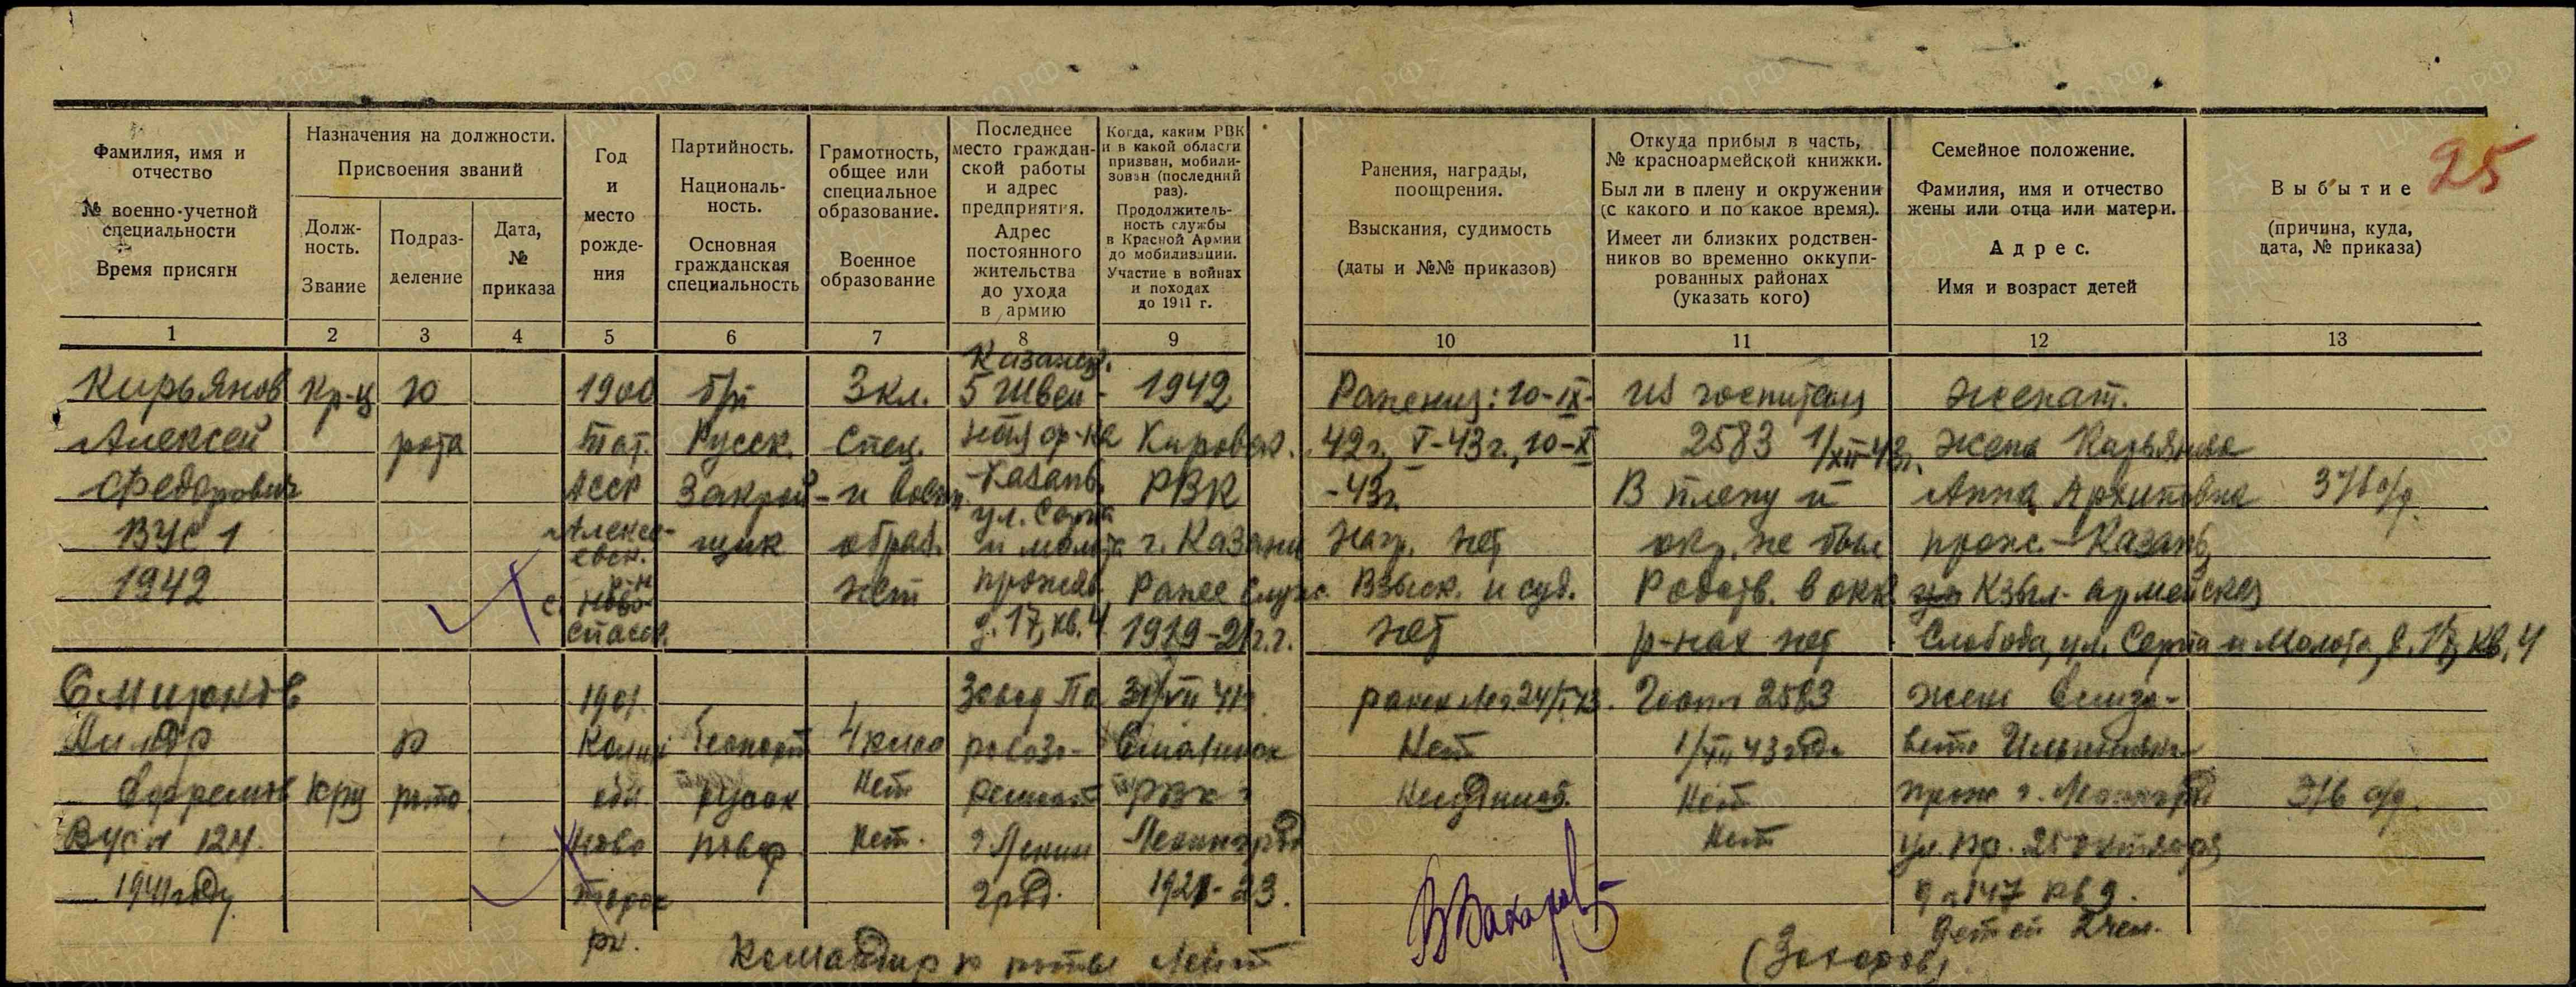 25
Фамилия, имя и
отчество
№ военно-учетной
специальности
Время присяги
Назначения на должности.
Присвоения званий
Долж-
ность.
Звание
Подраз-
деление
Дата,
№
приказа
Год
и
место
рожде-
ния
Партийность.
Националь-
ность.
Основная
гражданская
специальность
Грамотность,
общее или
специальное
образование.
Военное
образование
Последнее
место граждан-
ской работы
и адрес
предприятия.
Адрес
постоянного
жительства
до ухода
в армию
Когда, каким РВК
и в какой области
призван, мобили-
зован (последний
раз).
Продолжитель-
ность службы
в Красной Армии
до мобилизации.
Участие в войнах
и походах
до 1911 г.
Ранения, награды,
поощрения.
Взыскания, судимость
(даты и №№ приказов)
Откуда прибыл в часть,
№ красноармейской книжки.
Был ли в плену и окружении
(с какого и по какое время).
Имеет ли близких родствен-
ников во временно оккупи-
рованных районах
(указать кого)
Семейное положение.
Фамилия, имя и отчество
жены или отца или матери.
Адрес.
Имя и возраст детей
Выбытие
(причина, куда,
дата, № приказа)
1 2 3 4 5 6 7 8 9 10 11 12 13
Кирьянов
Алексей
Федорович
ВУС 1
1942
Кр-ц
10
рота
1900
Тат.
АССР
Алексе-
евск.
р-н
с. Ново-
спасск.
б/п
Русск.
Закрой-
щик
3 кл.
Спец.
и воен.
образ.
нет
Казанск.
5 Швей-
ная ф-ка
Казань,
ул. Серпа
и молота
прожив.
д. 17, кв. 4
1942
Кировск.
РВК
г. Казани
Ранее служ.
1919-21 г.г.
Ранения: 10-IX-
42 г., V-43 г., 10-X
-43 г.
Нагр. нет
Взыск. и суд.
нет
из госпиталя
2583 1/XII-43 г.
В плену и
окр. не был
Родств. в окк.
р-нах нет
женат.
жена Кирьянова
Анна Архиповна
прож. - Казань,
Кзыл-армейская
Слобода, ул. Серпа и Молота, д. 17, кв. 4
Смирнов
Ефремов
ВУС № 124.
1941 году
Крц
рота
1901.
Калин
обл
Ново
торж
рн.
Беспарт
русск
повар
4 класс
Нет
Нет.
Завод Па
ровозо-
ремонт
г Ленин
град.
31/VII 41 г
РВК
Ленинград
1921-23.
ранен 24/I 43.
Нет
Госп 2583
1/XII 43 года
Нет
Нет
жена Елиза-
вета Ильинична
прож г. Ленинград
ул. пр. 25 Октября
д № 147 кв 9.
детей 2 чел.
Командир роты Лейт
(Захаров)